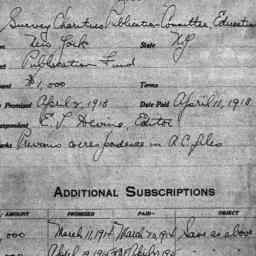 Survey Charities Publication Committee Educatio
New York State N.Y.
ect Publication Fund
ment $1,000 Terms
Promised April 2, 1913 Date Paid April 11, 1913
espondent E. T. Devine, Editor
arks Previous correspondence in A.C. files
ADDITIONAL SUBSCRIPTIONS
AMOUNT PROMISED PAID OBJECT
,000 March 11, 1914 March 20, 1914 Same as above
,000 April